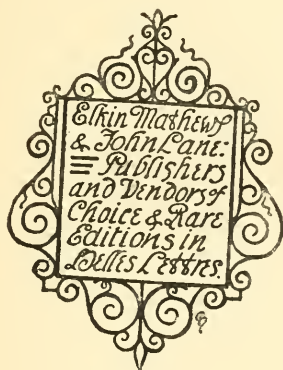 Elkin Mathews
& John Lane:
Publishers
and Vendors of
Choice & Rare
Editions in
Belles Lettres.